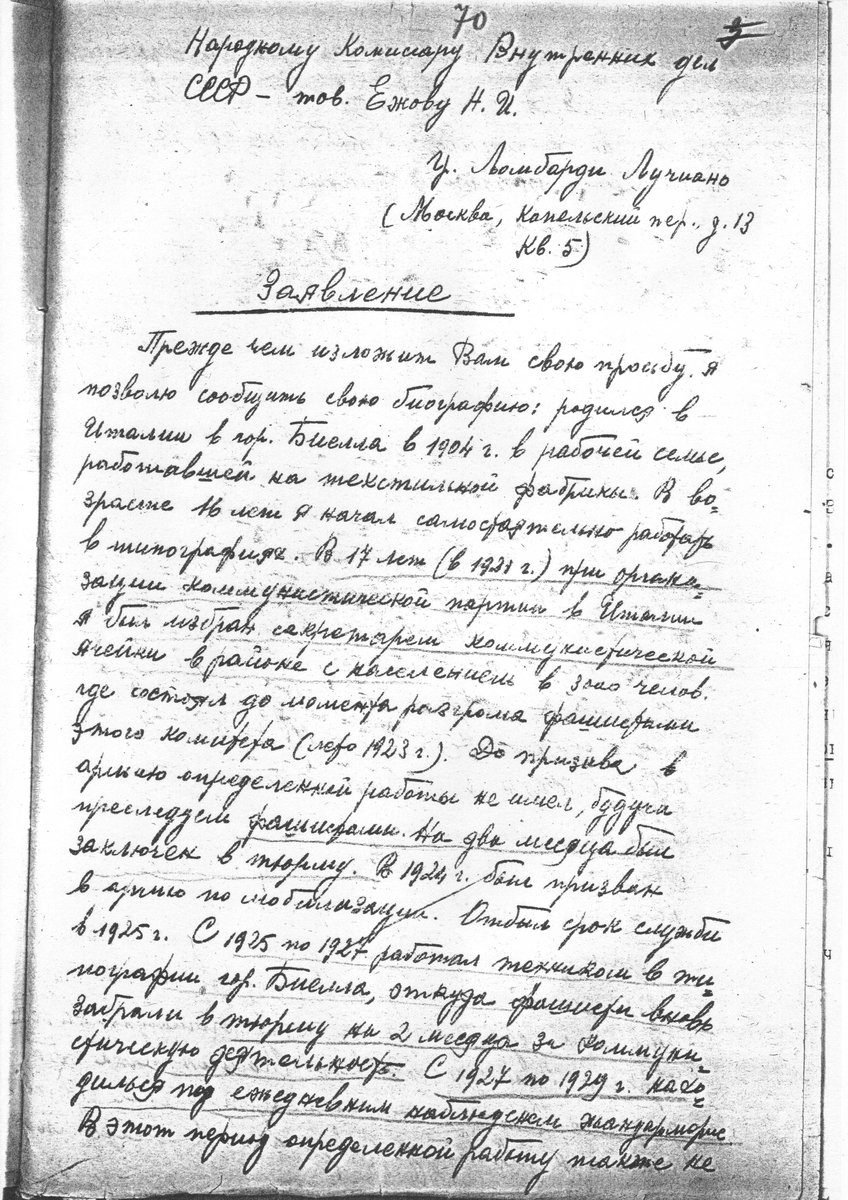 70
3
Народному Комиссару Внутренних дел
СССР – тов. Ежову Н. И.
Гр. Ломбарди Лучиано
(Москва, Капельский пер., д. 13
Кв. 5)
Заявление
Прежде чем изложит Вам свою просьбу, я
позволю сообщить свою биографию: родился в
Италии в гор. Биелла в 1904 г. в рабочей семье,
работавшей на текстильной фабрики. В во=
зрасте 16 лет я начал самостоятельно работать
в типографиях. В 17 лет (в 1921 г.) при органи=
зации коммунистической партии в Италии
я был избран секретарем коммунистической
ячейки в районе с населением в 3000 челов.
где состоял до момента разгрома фашистами
этого комитета (лето 1923 г.). До призыва в
армию определенной работы не имел, будучи
преследуем фашистами. На два месяца был
заключен в тюрьму. В 1924 г. был призван
в армию по мобилизации. Отбыл срок службы
в 1925 г. С 1925 по 1927 работал техником в ти=
пографии гор. Биелла, откуда фашисты вновь
забрали в тюрьму на 2 месяца за коммуни=
стическую деятельность. С 1927 по 1929 г. нахо=
дился под ежедневним наблюдением жандармерие
В этот период определенной работу также не